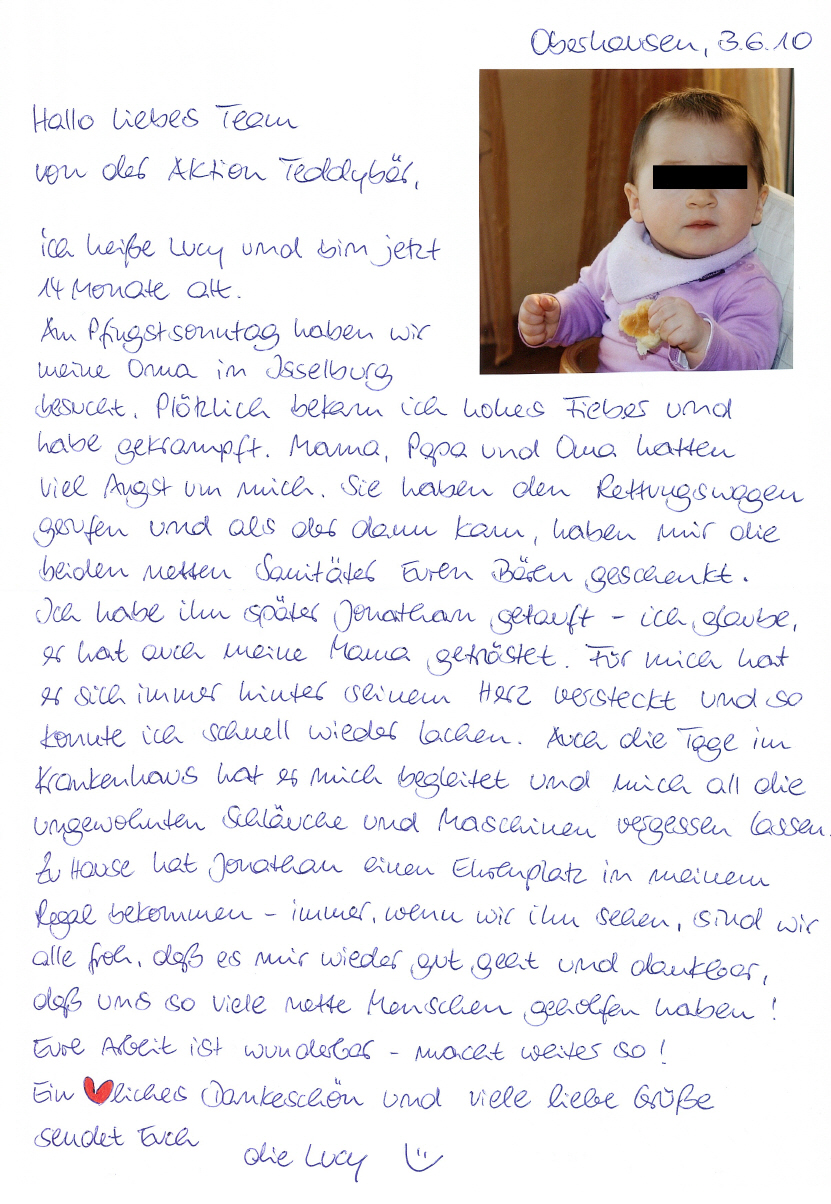 Oberhausen, 3.6.10
Hallo liebes Team
von der Aktion Teddybär,
ich heiße Lucy und bin jetzt
14 Monate alt.
Am Pfingstsonntag haben wir
meine Oma in Isselburg
besucht. Plötzlich bekam ich hohes Fieber und
habe gekrampft. Mama, Papa und Oma hatten
viel Angst um mich. Sie haben den Rettungswagen
gerufen und als der dann kam, haben mir die
beiden netten Sanitäter Euren Bären geschenkt.
Ich habe ihn später Jonathan getauft – ich glaube,
er hat auch meine Mama getröstet. Für mich hat
er sich immer hinter seinem Herz versteckt und so
konnte ich schnell wieder lachen. Auch die Tage im
Krankenhaus hat er mich begleitet und mich all die
ungewohnten Schläuche und Maschinen vergessen lassen.
Zu Hause hat Jonathan einen Ehrenplatz in meinem
Regal bekommen – immer, wenn wir ihn sehen, sind wir
alle froh, daß es mir wieder gut geht und dankbar,
daß uns so viele nette Menschen geholfen haben!
Eure Arbeit ist wunderbar – macht weiter so!
Ein ♥liches Dankeschön und viele liebe Grüße
sendet Euch
die Lucy